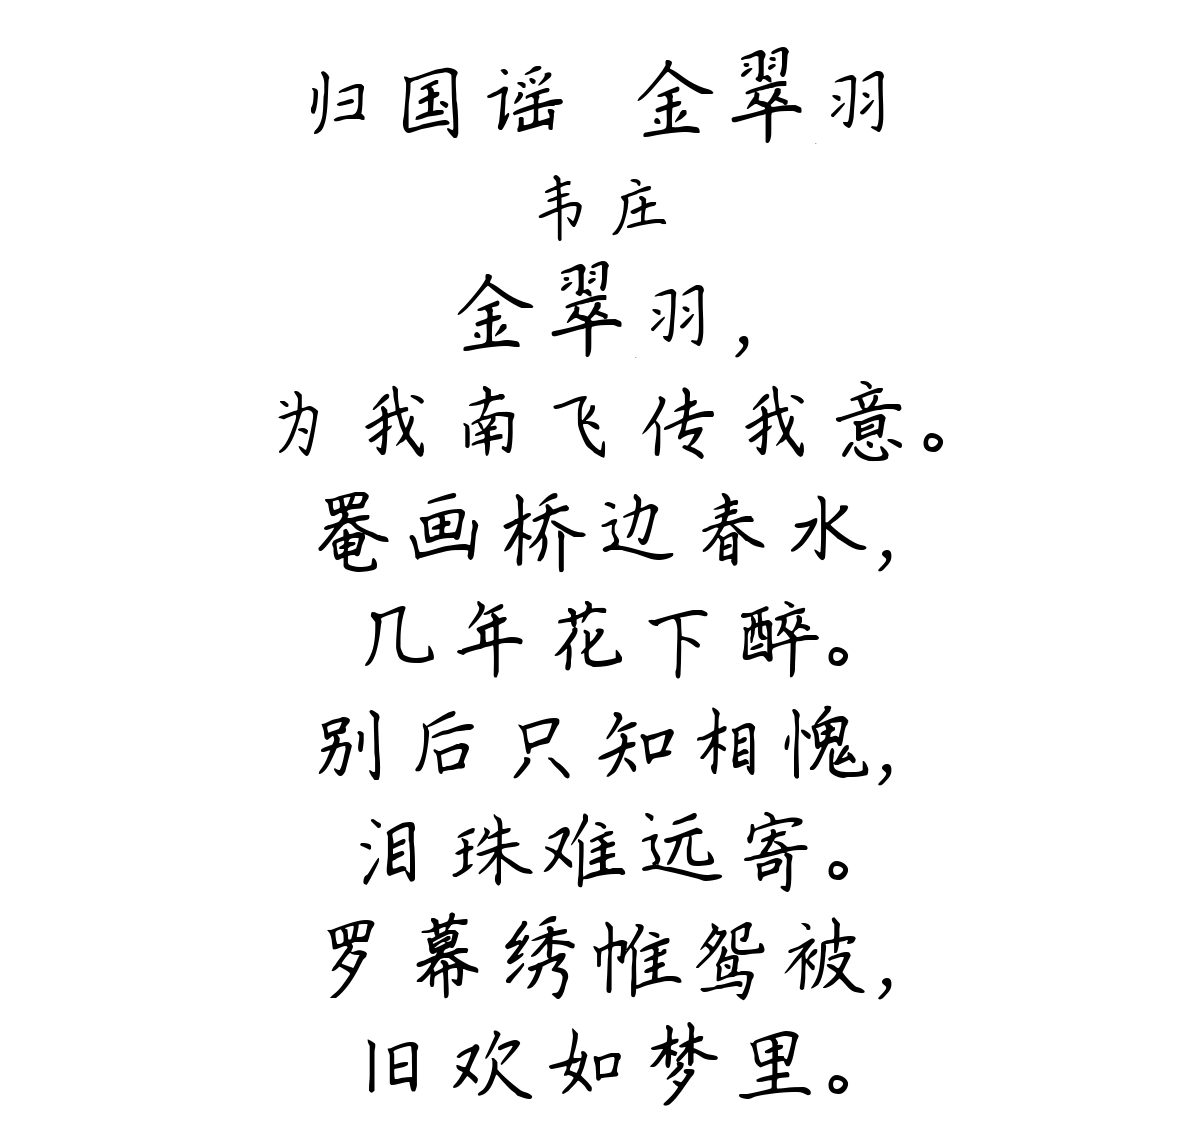 归国谣 金翠羽
韦庄
金翠羽，
为我南飞传我意。
罨画桥边春水，
几年花下醉。
别后只知相愧，
泪珠难远寄。
罗幕绣帷鸳被，
旧欢如梦里。